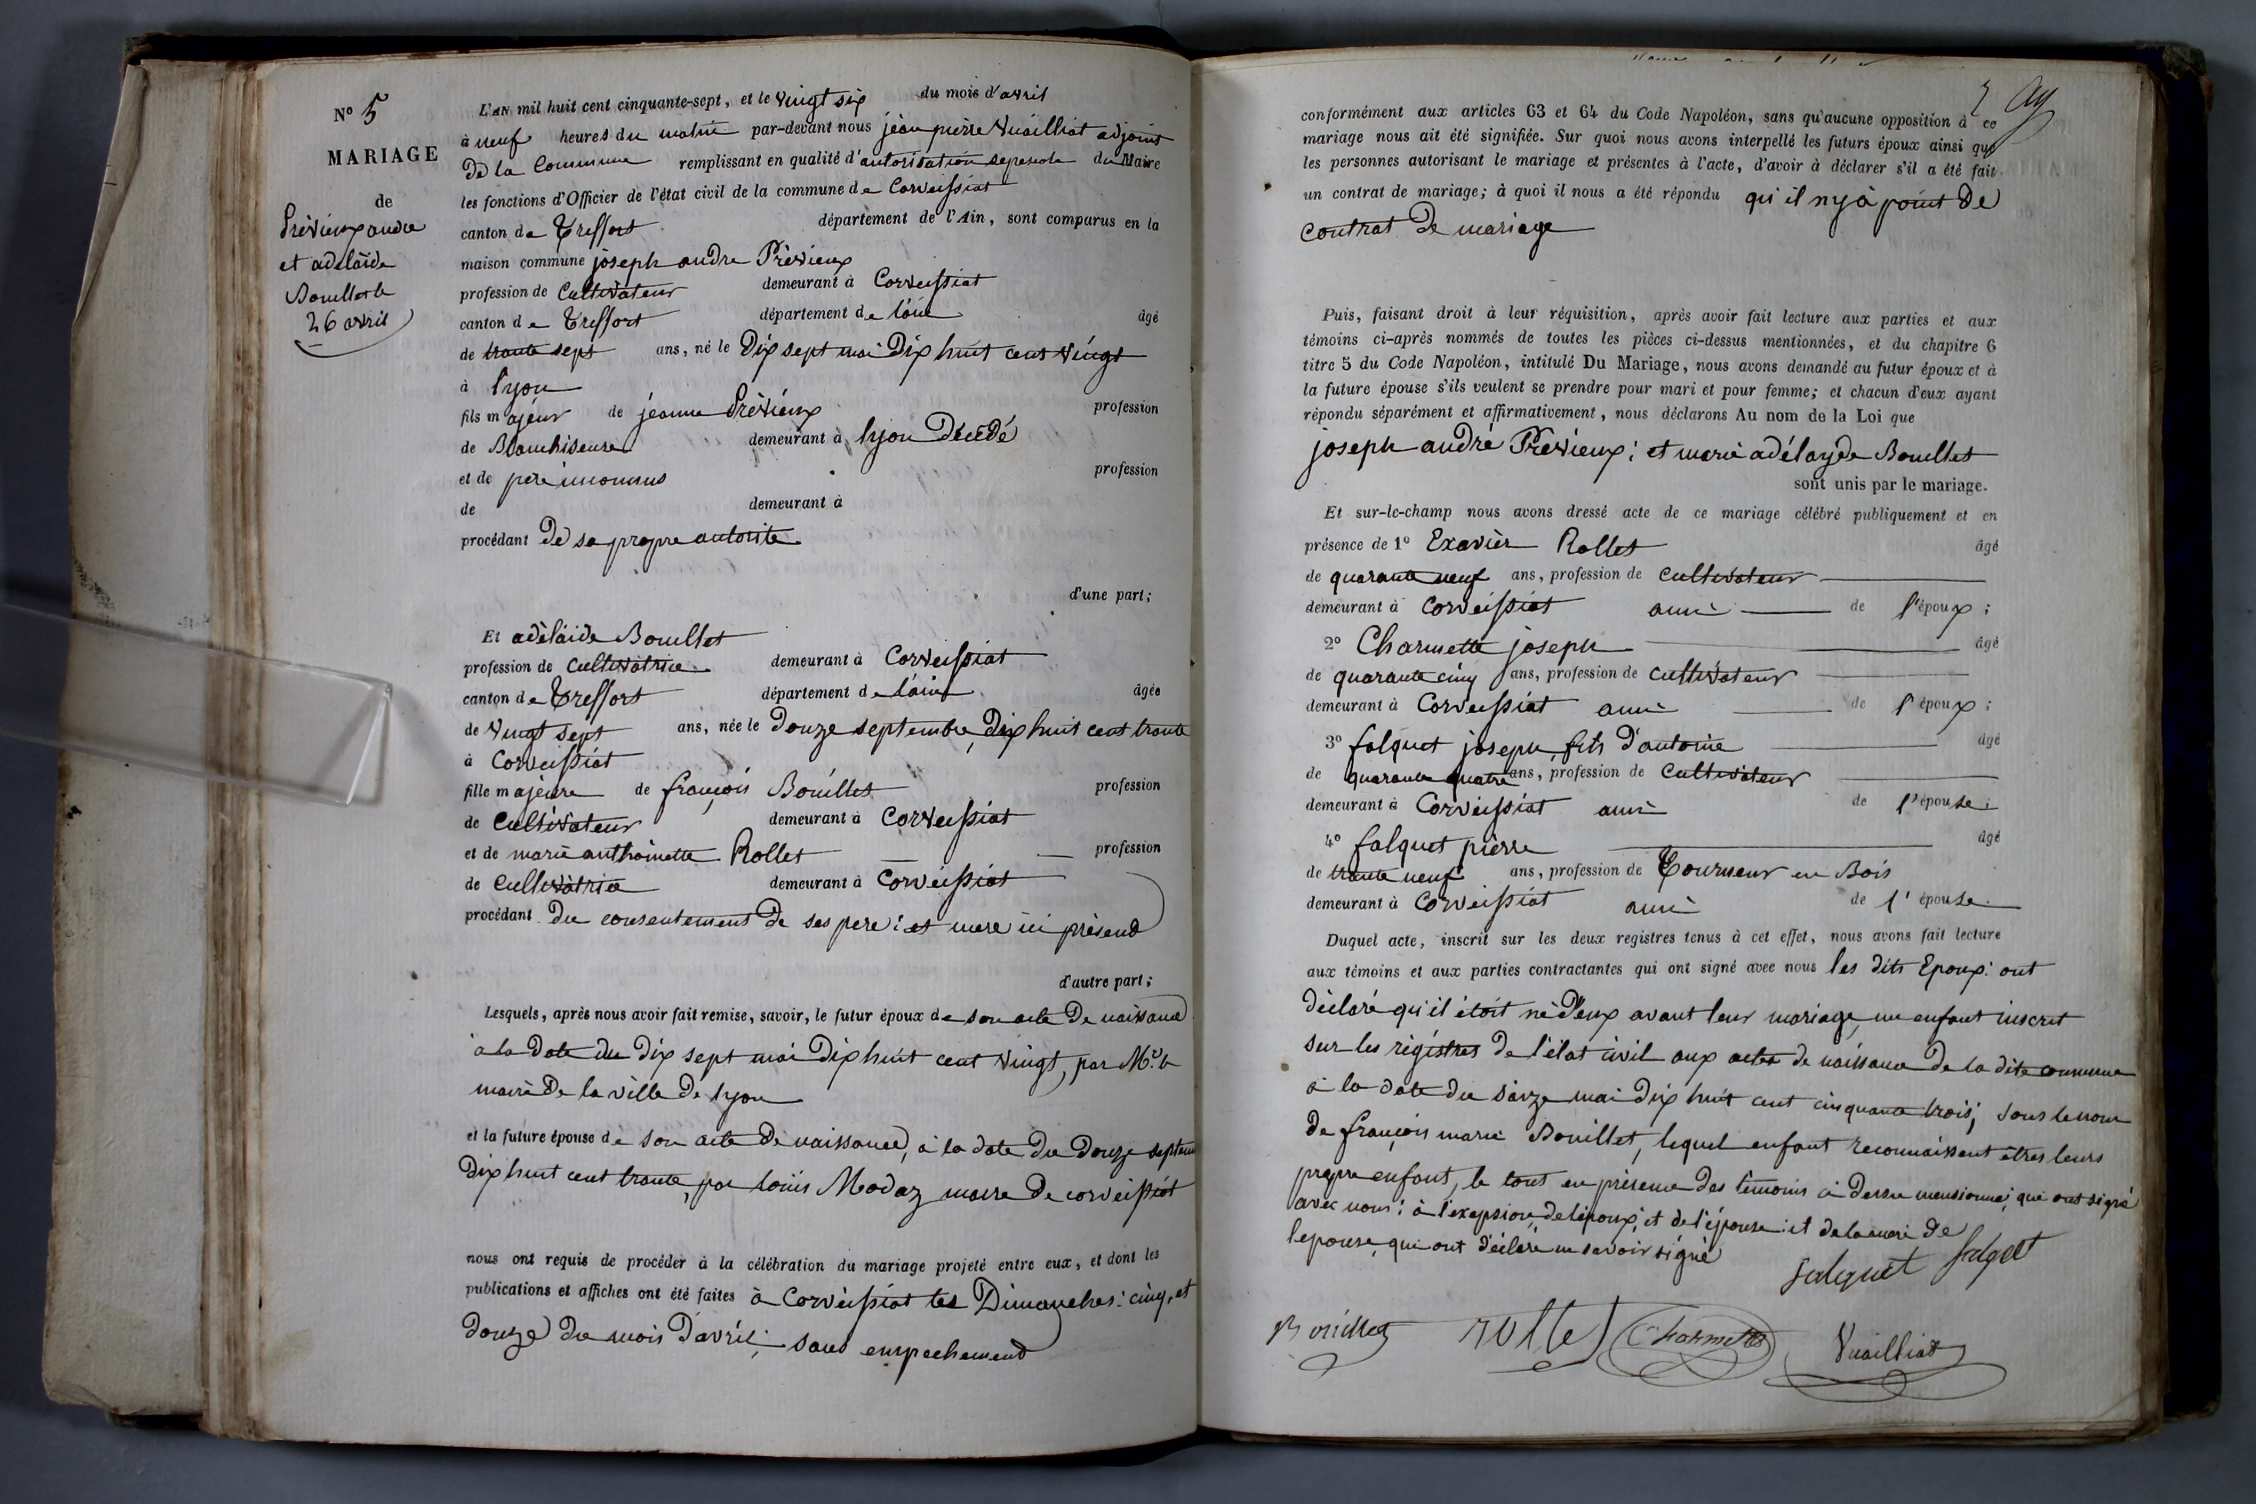 N° 5
MARIAGE
de
Prévieux andre
et adélaïde
Bouillet le
26 avril
L'AN mil huit cent cinquante-sept, et le vingt six du mois d'avril
à neuf heures du matin par-devant nous jean pierre Vuailliat adjoint
de la Commune remplissant en qualité d'autorisation du Maire
les fonctions d'Officier de l'état civil de la commune de Corveissiat
canton de Treffort département de l'Ain, sont comparus en la
maison commune joseph andre Prévieux
profession de Cultivateur demeurant à Corveissiat
canton de Treffort département de l'ain âgé
de trante sept ans, né le Dix sept mai Dix huit cent vingt
à lyon
fils majeur de jeanne Prévieux profession
de Blanchiseuse demeurant à lyon Décédé
et de père inconnus profession
de demeurant à
procédant de sa propre autorite
d'une part;
Et adélaïde Bouillet
profession de Cultivatrice demeurant à Corveissiat
canton de Treffort département de l'ain âgée
de vingt sept ans, née le Douze septembre Dix huit cent trante
à Corveissiat
fille majeure de françois Bouillet profession
de Cultivateur demeurant à Corveissiat
et de marie anthoinette Rollet profession
de Cultivatrice demeurant à Corveissiat
procédant du consentement de ses pere : et mere ici présend
d'autre part;
Lesquels, après nous avoir fait remise, savoir, le futur époux de son acte de naissance
a la date du dix sept mai dix huit cent vingt, par Mr le
maire de la ville de lyon
et la future épouse de son acte de naissance, à la date du douze septem
dix huit cent trante, par louis Modaz maire de corveissiat
nous ont requis de procéder à la célébration du mariage projeté entre eux, et dont les
publications et affiches ont été faites à Corveissiat les Dimanches : cinq, et
douze du mois d'avril; sans empechement
conformément aux articles 63 et 64 du Code Napoléon, sans qu'aucune opposition à ce
mariage nous ait été signifiée. Sur quoi nous avons interpellé les futurs époux ainsi que
les personnes autorisant le mariage et présentes à l'acte, d'avoir à déclarer s'il a été fait
un contrat de mariage; à quoi il nous a été répondu qu'il n'y à point de
contrat de mariage
Puis, faisant droit à leur réquisition, après avoir fait lecture aux parties et aux
témoins ci-après nommés de toutes les pièces ci-dessus mentionnées, et du chapitre 6
titre 5 du Code Napoléon, intitulé Du Mariage, nous avons demandé au futur époux et à
la future épouse s'ils veulent se prendre pour mari et pour femme; et chacun d'eux ayant
répondu séparément et affirmativement, nous déclarons Au nom de la Loi que
joseph andré Prévieux; et marie adélayde Bouillet
sont unis par le mariage.
Et sur-le-champ nous avons dressé acte de ce mariage célébré publiquement et en
présence de 1° Exavier Rollet âgé
de quarante neuf ans, profession de cultivateur
demeurant à corveissiat ami de l'époux;
2° Charmette joseph âgé
de quarante cinq ans, profession de cultivateur
demeurant à Corveissiat ami de l'époux;
3° falquet joseph, fils d'antoine âgé
de quarante quatre ans, profession de Cultivateur
demeurant à Corveissiat ami de l'épouse;
4° falquet pierre âgé
de trante neuf ans, profession de Tourneur en Bois
demeurant à corveissiat ami de l'épouse.
Duquel acte, inscrit sur les deux registres tenus à cet effet, nous avons fait lecture
aux témoins et aux parties contractantes qui ont signé avec nous les dits Epoux : ont
déclaré qu'il étoit né d'eux avant leur mariage, un enfant inscrit
sur les régistres de l'état civil aux actes de naissance de la dite commune
à la date du saize mai dix huit cent cinquante trois; sous le nom
de françois marie Bouillet, lequel enfant reconnaissent êtres leurs
propre enfant, le tout en présence des témoins ci dessu mensionné; qui ont signé
avec nous : à l'exepsion de l'époux; et de l'épouse : et de la mere de
l'epouse, qui ont déclaré ne savoir signé
falquet falqet
Bouillet rollet Charmette Vuailliat